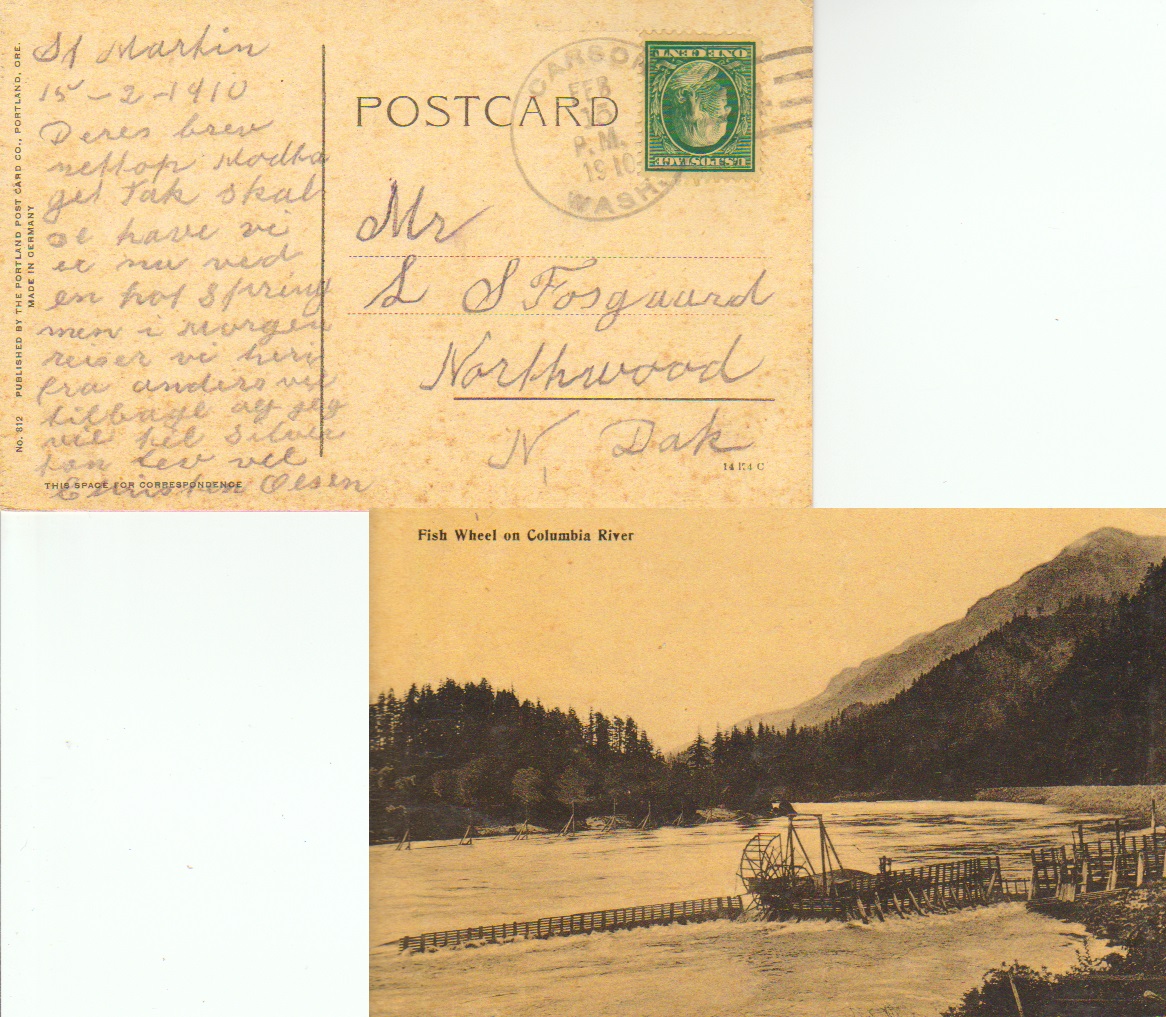 No. 812 PUBLISHED BY THE PORTLAND POST CARD CO., PORTLAND, ORE.
MADE IN GERMANY
St Martin
15-2-1910
Deres brev
nettop Modta
get Tak skal
De have vi
er nu ved
en hot Spring
men i Morgen
reiser vi heri
fra anders vil
tilbage og jeg
vil til Silver
ton lev vel
Christen Olsen
THIS SPACE FOR CORRESPONDENCE
POSTCARD
CARSON
FEB
15
P.M.
1910
WASH.
U.S. POSTAGE
ONE CENT
Mr
L S Fosgaard
Northwood
N. Dak
14 K4 C
Fish Wheel on Columbia River